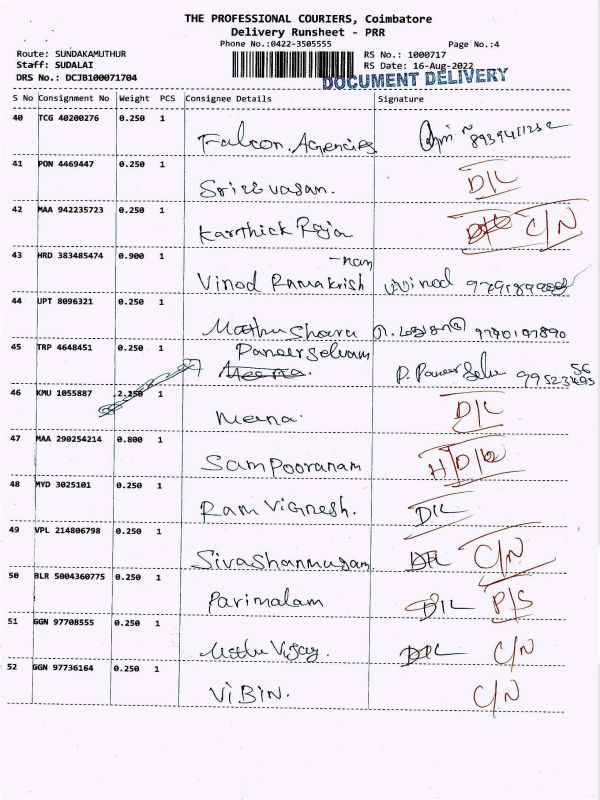 THE PROFESSIONAL COURIERS, Coimbatore
Delivery Runsheet - PRR
Phone No.:0422-3505555 Page No.:4
Route: SUNDAKAMUTHUR RS No.: 1000717
Staff: SUDALAI RS Date: 16-Aug-2022
DRS No.: DCJB100071704 DOCUMENT DELIVERY
S No Consignment No Weight PCS Consignee Details Signature
40 TCG 40200276 0.250 1
Falcon. Agencies
41 PON 4469447 0.250 1
Srinivasan. D/L
42 MAA 942235723 0.250 1
Karthick Raja C/N
43 HRD 383485474 0.900 1
-nan
Vinod Ramakrish Vinod
44 UPT 8096321 0.250 1
45 TRP 4648451 0.250 1
Paneerselvam
Meena. P. Paneer Selva
46 KMU 1055887 2.250 1
Meena. D/L
47 MAA 290254214 0.800 1
Sampooranam
48 MYD 3025101 0.250 1
Ram Vignesh. D/L
49 VPL 214806798 0.250 1
Sivashanmugam D/L C/N
50 BLR 5004360775 0.250 1
Parimalam D/L P/S
51 GGN 97708555 0.250 1
Muthu Vijay D/L C/N
52 GGN 97736164 0.250 1
ViBIN. C/N